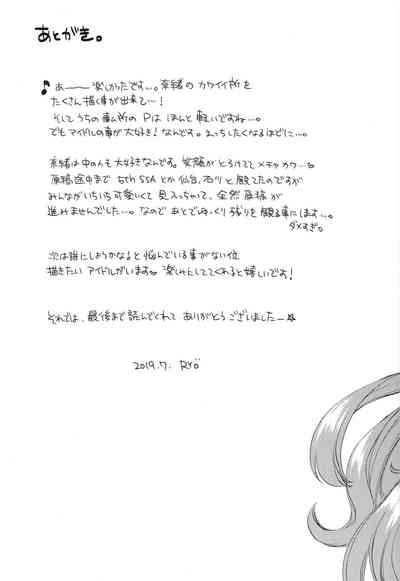 あとがき。
あ――楽しかったです…。奈緒のカワイイ所を
たくさん描く事が出来て…!
そしてうちの事ム所のPはほんと軽いですね…。
でもアイドルの事が大好き!なんです。えっちしたくなるほどに…。
奈緒は中の人も大好きなんです。笑顔がとろけてメチャカワ…。
原稿途中まで 5th SSA とか 仙台、石川と観てたのですが
みんながいちいち可愛いくて見入っちゃって、全然原稿が
進みませんでした…。なのであとでゆっくり残りを観る事にします…。
ダメすぎ。
次は誰にしようかなると悩んでいる事がない位
描きたいアイドルがいます。楽しみにしててくれると嬉しいです!
それでは、最後まで読んでくれてありがとうございましたー☆
2019.7. Ryö